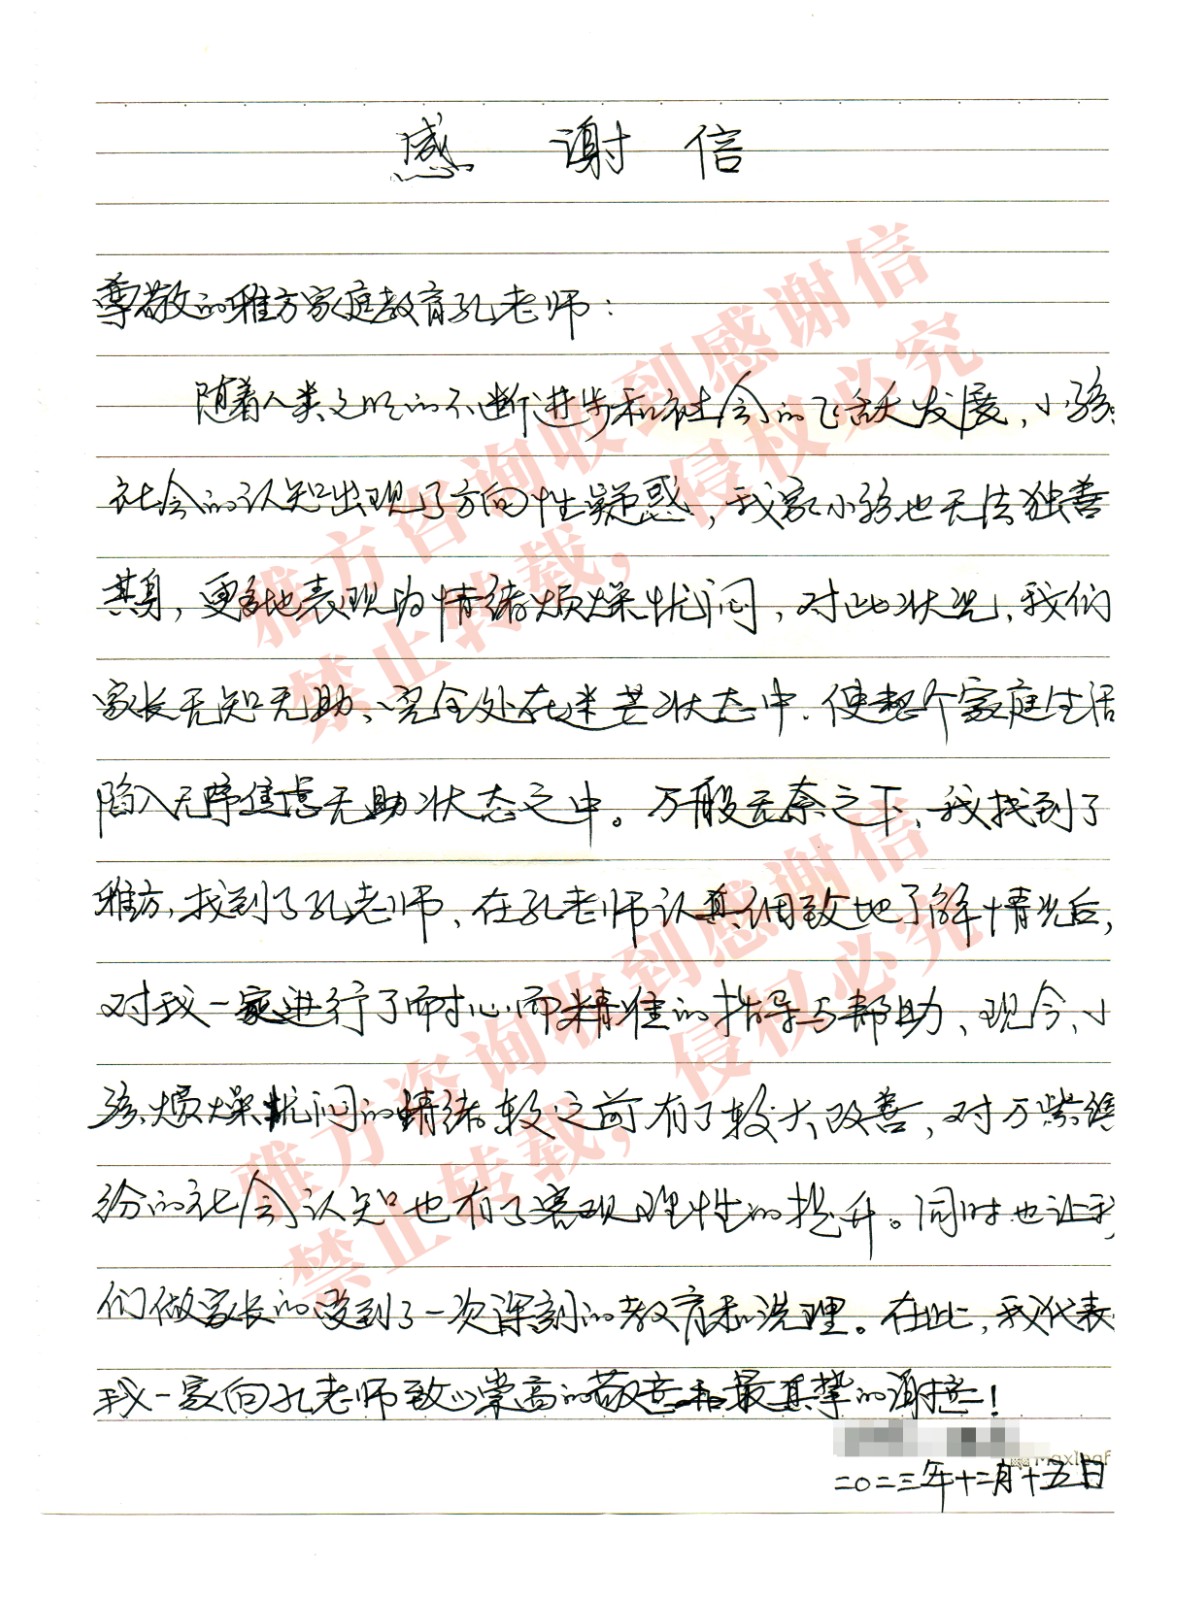 感 谢 信
尊敬的雅方家庭教育孔老师：
随着人类文明的不断进步和社会的飞跃发展，小孩
社会的认知出现了方向性疑惑，我家小孩也无法独善
其身，更多地表现为情绪烦燥忧闷，对此状况，我们
家长无知无助、完全处在迷芒状态中.使整个家庭生活
陷入无序焦虑无助状态之中。万般无奈之下、我找到了
雅方，找到了孔老师、在孔老师认真细致地了解情况后，
对我一家进行了耐心而精准的指导与帮助、现今、小
孩烦燥忧闷的情绪较之前有了较大改善，对万紫
纷的社会认知也有了客观理性的提升。同时也让我
们做家长的受到了一次深刻的教育和洗理。在此，我代表
我一家向孔老师致以崇高的敬意和最真挚的谢意！
二〇二三年十二月十五日
Maxleaf
雅方咨询收到感谢信
禁止转载，侵权必究
雅方咨询收到感谢信
禁止转载，侵权必究